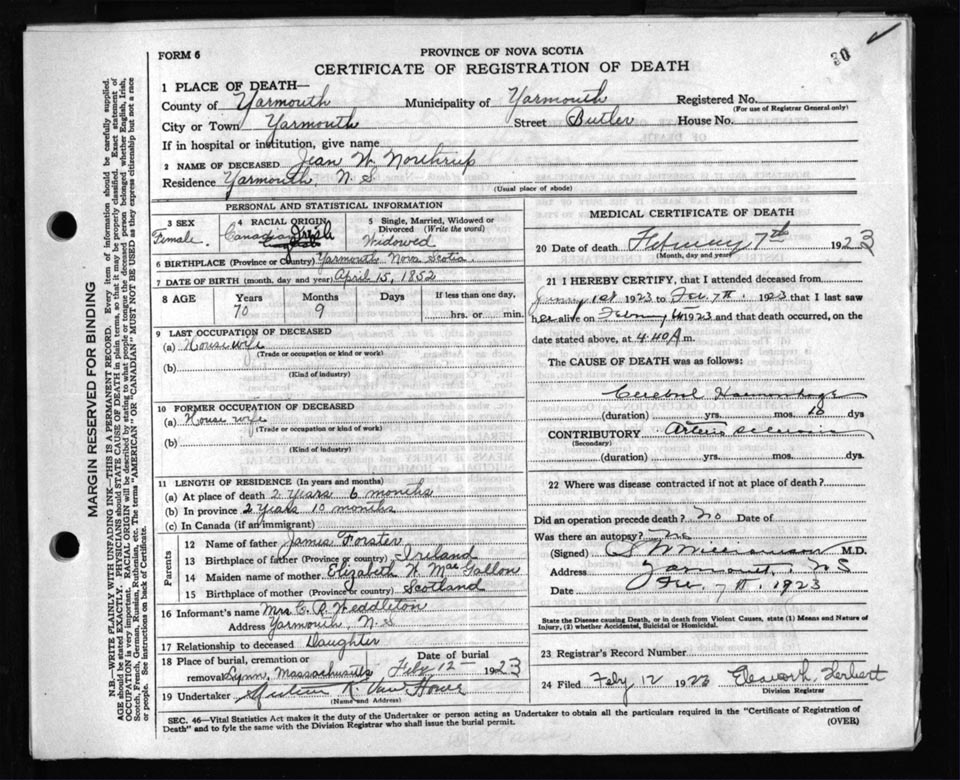 30
FORM 6
PROVINCE OF NOVA SCOTIA
CERTIFICATE OF REGISTRATION OF DEATH
MARGIN RESERVED FOR BINDING
N.B.—WRITE PLAINLY WITH UNFADING INK—THIS IS A PERMANENT RECORD. Every item of information should be carefully supplied.
AGE should be stated EXACTLY. PHYSICIANS should STATE CAUSE OF DEATH in plain terms, so that it may be properly classified. Exact statement of
OCCUPATION is very important. RACIAL ORIGIN will be described by stating to what people or tongue the deceased person belonged whether English, Irish,
Scotch, French, German, Russian, Ruthenian, etc. The terms "AMERICAN" OR "CANADIAN" MUST NOT BE USED as they express citizenship but not a race
or people. See instructions on back of Certificate.
1 PLACE OF DEATH—
County of Yarmouth Municipality of Yarmouth Registered No.
(For use of Registrar General only)
City or Town Yarmouth Street Butler House No.
If in hospital or institution, give name
2 NAME OF DECEASED Jean W. Northrup
Residence Yarmouth, N.S.
(Usual place of abode)
PERSONAL AND STATISTICAL INFORMATION
3 SEX
Female.
4 RACIAL ORIGIN
Canadian Irish
5 Single, Married, Widowed or
Divorced (Write the word)
Widowed
6 BIRTHPLACE (Province or Country) Yarmouth Nova Scotia.
7 DATE OF BIRTH (month, day and year) April 15, 1852
8 AGE Years Months Days If less than one day,
70 9 hrs. or min.
9 LAST OCCUPATION OF DECEASED
(a) Housewife
(Trade or occupation or kind or work)
(b)
(Kind of industry)
10 FORMER OCCUPATION OF DECEASED
(a) House wife
(Trade or occupation or kind of work)
(b)
(Kind of industry)
11 LENGTH OF RESIDENCE (In years and months)
(a) At place of death 2 years 6 months
(b) In province 2 years 10 months
(c) In Canada (if an immigrant)
Parents
12 Name of father James Forster
13 Birthplace of father (Province or country) Ireland
14 Maiden name of mother Elizabeth W. MacGallon
15 Birthplace of mother (Province or country) Scotland
16 Informant's name Mrs. C. R. Weddleton
Address Yarmouth, N.S
17 Relationship to deceased Daughter
18 Place of burial, cremation or Date of burial
removal Lynn, Massachusetts Feby 12 1923
19 Undertaker K. Van Horne
(Name and Address)
MEDICAL CERTIFICATE OF DEATH
20 Date of death February 7th 1923
(Month, day and year)
21 I HEREBY CERTIFY, that I attended deceased from
1st 1923 to Feb. 7th, 1923 that I last saw
her alive on February 6 1923 and that death occurred, on the
date stated above, at 4:40 A m.
The CAUSE OF DEATH was as follows:
Cerebral Haemorrhage
(duration) yrs. mos. 10 dys
CONTRIBUTORY Arterio sclerosis
(Secondary)
(duration) yrs. mos. dys.
22 Where was disease contracted if not at place of death?
Did an operation precede death? No Date of
Was there an autopsy? No
(Signed) M.D.
Address Yarmouth, NS
Date Feb 7th, 1923
State the Disease causing Death, or in death from Violent Causes, state (1) Means and Nature of
Injury, (2) whether Accidental, Suicidal or Homicidal.
23 Registrar's Record Number
24 Filed Feby 12 1923 Herbert
Division Registrar
SEC. 46—Vital Statistics Act makes it the duty of the Undertaker or person acting as Undertaker to obtain all the particulars required in the "Certificate of Registration of
Death" and to fyle the same with the Division Registrar who shall issue the burial permit.
(OVER)